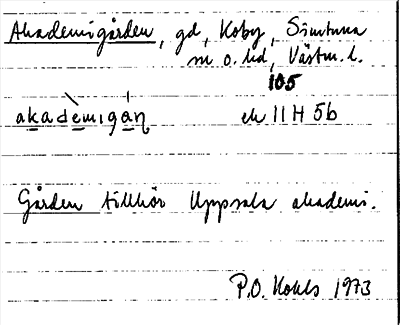 Akademigården, gd, Koby, Simtuna
sn o. hd, Västm. l.
105
akadèmigán ek 11H 5b
Gården tillhör Uppsala akademi.
P.O. Kohls 1973